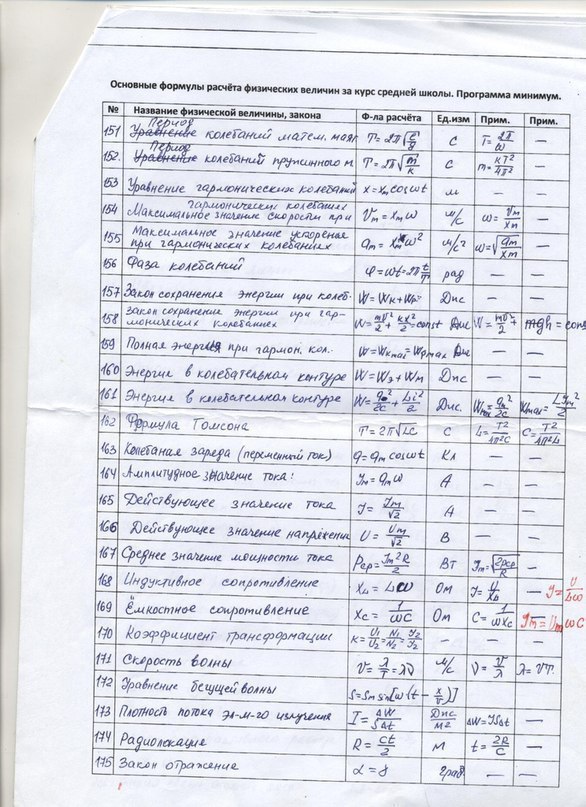 Основные формулы расчёта физических величин за курс средней школы. Программа минимум.
№ Название физической величины, закона Ф-ла расчёта Ед.изм Прим. Прим.
151 Период колебаний матем. маят T=2π√(ℓ/g) с T=2π/ω —
152. Период колебаний пружинного м T=2π√(m/k) с m=kT²/4π² —
153 Уравнение гармонических колебаний x=xm cosωt м — —
154 Максимальное значение скорости при гармонических колебаниях Vm=xmω м/с ω=Vm/xm —
155 Максимальное значение ускорения при гармонических колебаниях am=xmω² м/с² ω=√(am/xm) —
156 Фаза колебаний φ=ωt=2πt/T рад — —
157 Закон сохранения энергии при колеб. W=Wk+Wп= Дж — —
158 Закон сохранения энергии при гармонических колебаниях W=mV²/2+kx²/2=const Дж W=mV²/2+mgh=cons
159 Полная энергия при гармон. кол. W=Wkmax=Wpmax Дж — —
160 Энергия в колебательном контуре W=Wэ+Wм Дж — —
161 Энергия в колебательном контуре W=q²/2c+Li²/2 Дж. Wmax=qm²/2c Wmax=LIm²/2
162 Формула Томсона T=2π√LC С L=T²/4π²C C=T²/4π²L
163 Колебания заряда (переменный ток) q=qm cosωt Кл — —
164 Амплитудное значение тока: Im=qmω А — —
165 Действующее значение тока I=Im/√2 А — —
166 Действующее значение напряжения U=Um/√2 В — —
167 Среднее значение мощности тока Pср=Im²R/2 Вт Im=√(2Pср/R) —
168 Индуктивное сопротивление XL=Lω Ом I=U/XL — I=U/Lω
169 Ёмкостное сопротивление Xc=1/ωC Ом C=1/ωXc Im=UmωC
170 Коэффициент трансформации K=U1/U2=N1/N2=I2/I1 — — —
171 Скорость волны V=λ/T=λν м/с ν=V/λ λ=VT.
172 Уравнение бегущей волны S=Sm sin[ω(t-x/v)]
173 Плотность потока эл-м-го излучения I=ΔW/SΔt Дж/м² ΔW=ISΔt —
174 Радиолокация R=ct/2 м t=2R/C —
175 Закон отражения α=γ град. — —